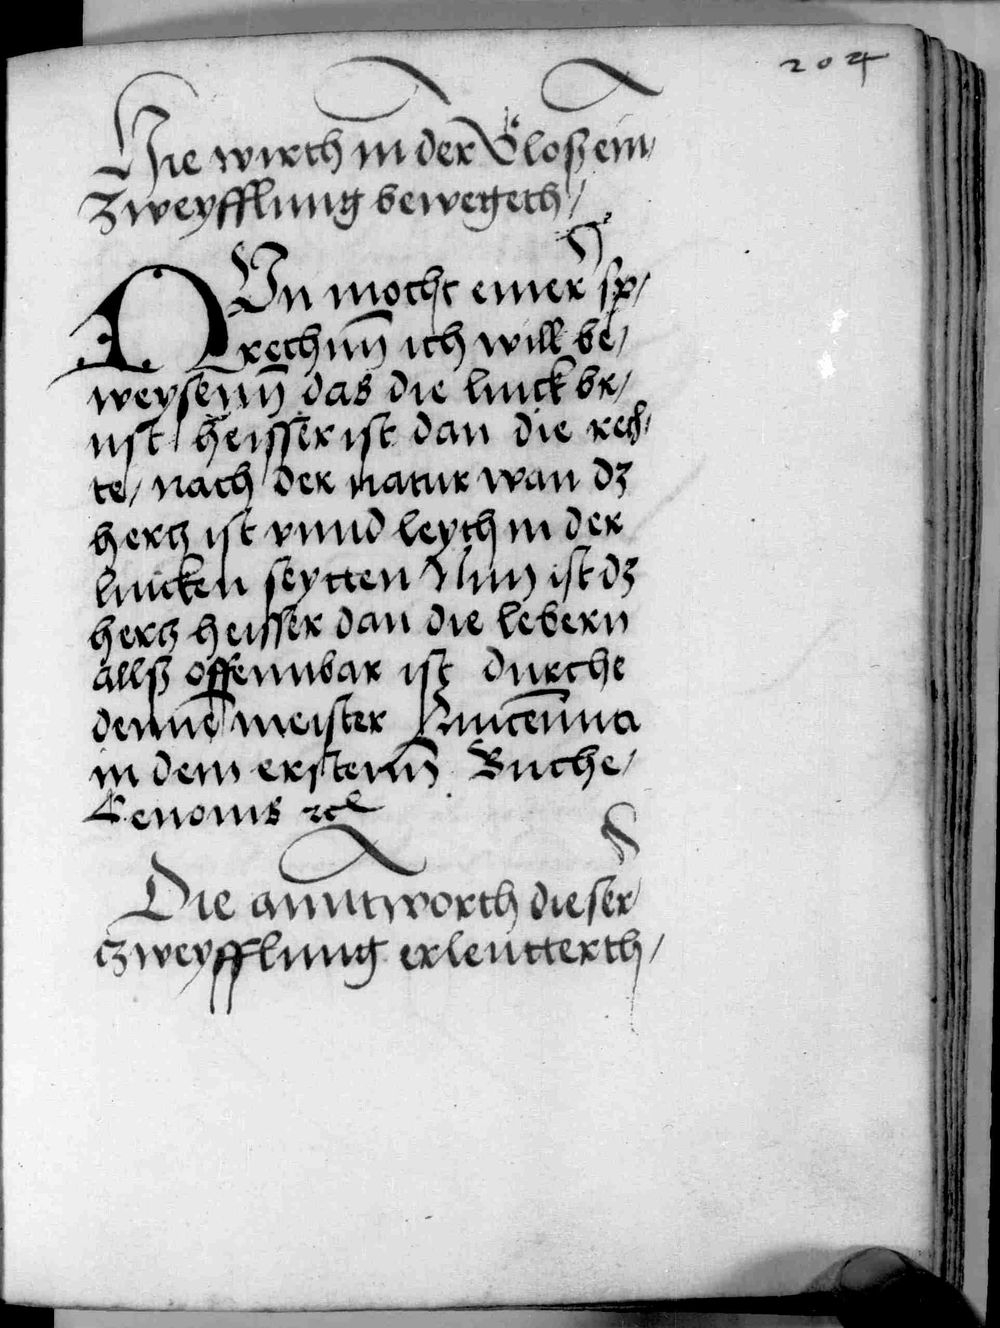 204
Hie wirth in der Gloß ein/
zweyfflung bewegeth/
NUn mocht einer sp/
rechnn̄ ich will be/
weysenn̄ das die linck br/
ust heisser ist dan die rech/
te/ nach der natur wan dz
hertz ist vnnd leyth in der
lincken seytten Nun ist dz
hertz heisser dan die lebern
allß offennbar ist durche
denne̅ meister Auice̅nna
in dem erstenn̄ Buche/
Cenonis ꝛc
Die anntworth dieser
zweyfflung erleutterth/